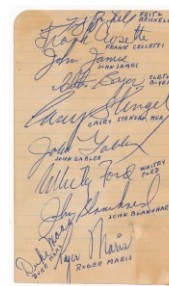 FRITZ
BRICKELL
Frank Crosetti
FRANK CROSETTI
John James
JOHN JAMES
Clete Boyer
CLETE
BOYER
Casey Stengel
CASEY STENGEL MGR
John Gabler
JOHN GABLER
Whitey Ford
WHITEY
FORD
John Blanchard
JOHN BLANCHARD
Duke Maas
DUKE MAAS
Roger Maris
ROGER MARIS